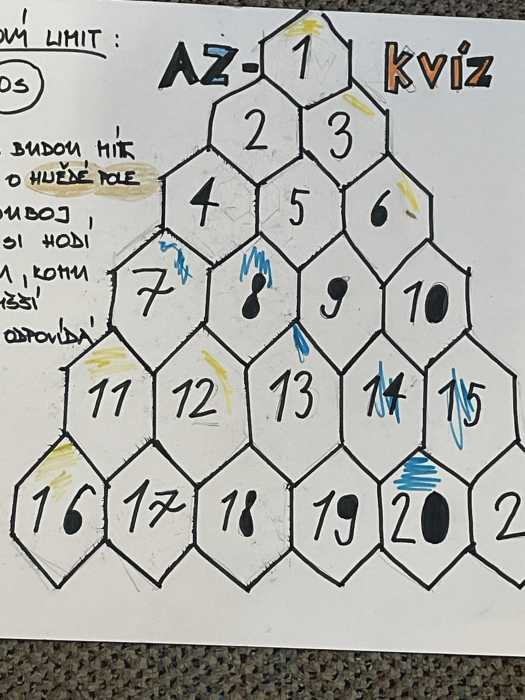 OVÝ LIMIT :
OS
AZ-KVÍZ
BUDOU MÍT
O HNĚDÉ POLE
OUBOJ,
SI HODÍ
, KOMU
ODPOVÍDÁ
1
2 3
4 5 6
7 8 9 10
11 12 13 14 15
16 17 18 19 20 2